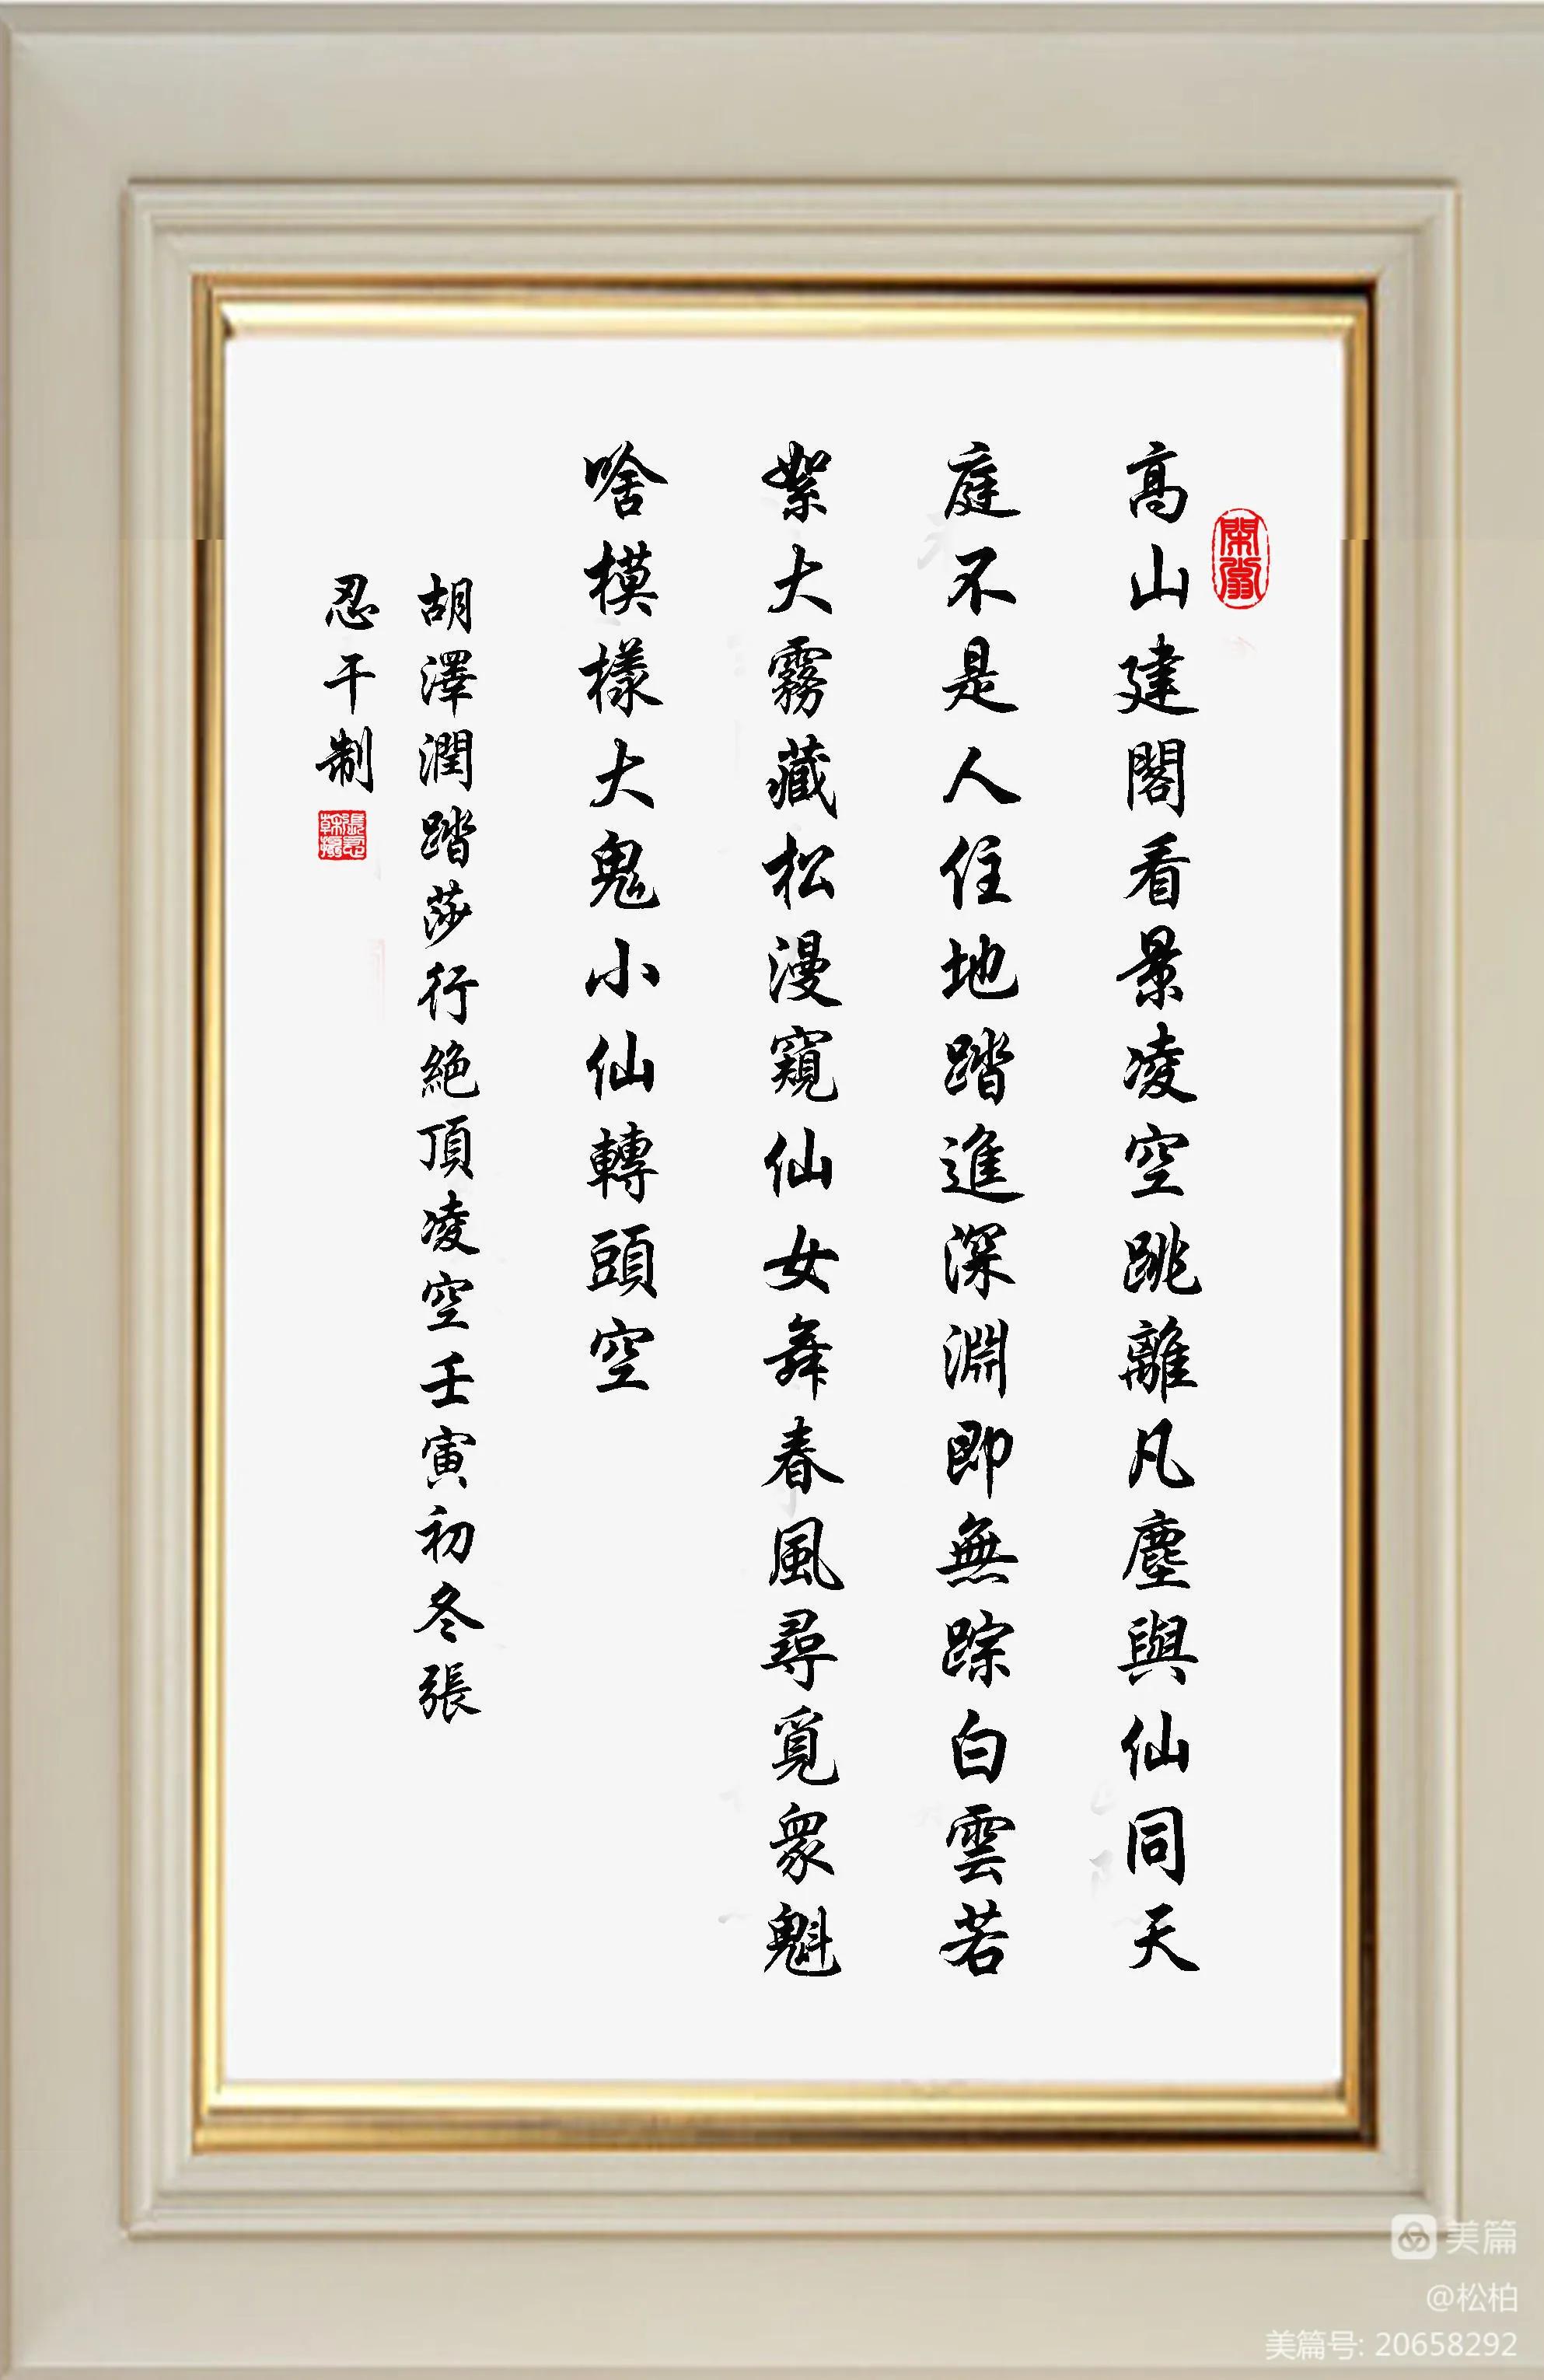 高山建閣看景凌空跳離凡塵與仙同天
庭不是人住地踏進深淵即無踪白雲若
絮大霧藏松漫窺仙女舞春風尋覓衆魁
啥模樣大鬼小仙轉頭空
胡澤潤踏莎行絶頂凌空壬寅初冬張
忍干制
美篇
@松柏
美篇号: 20658292